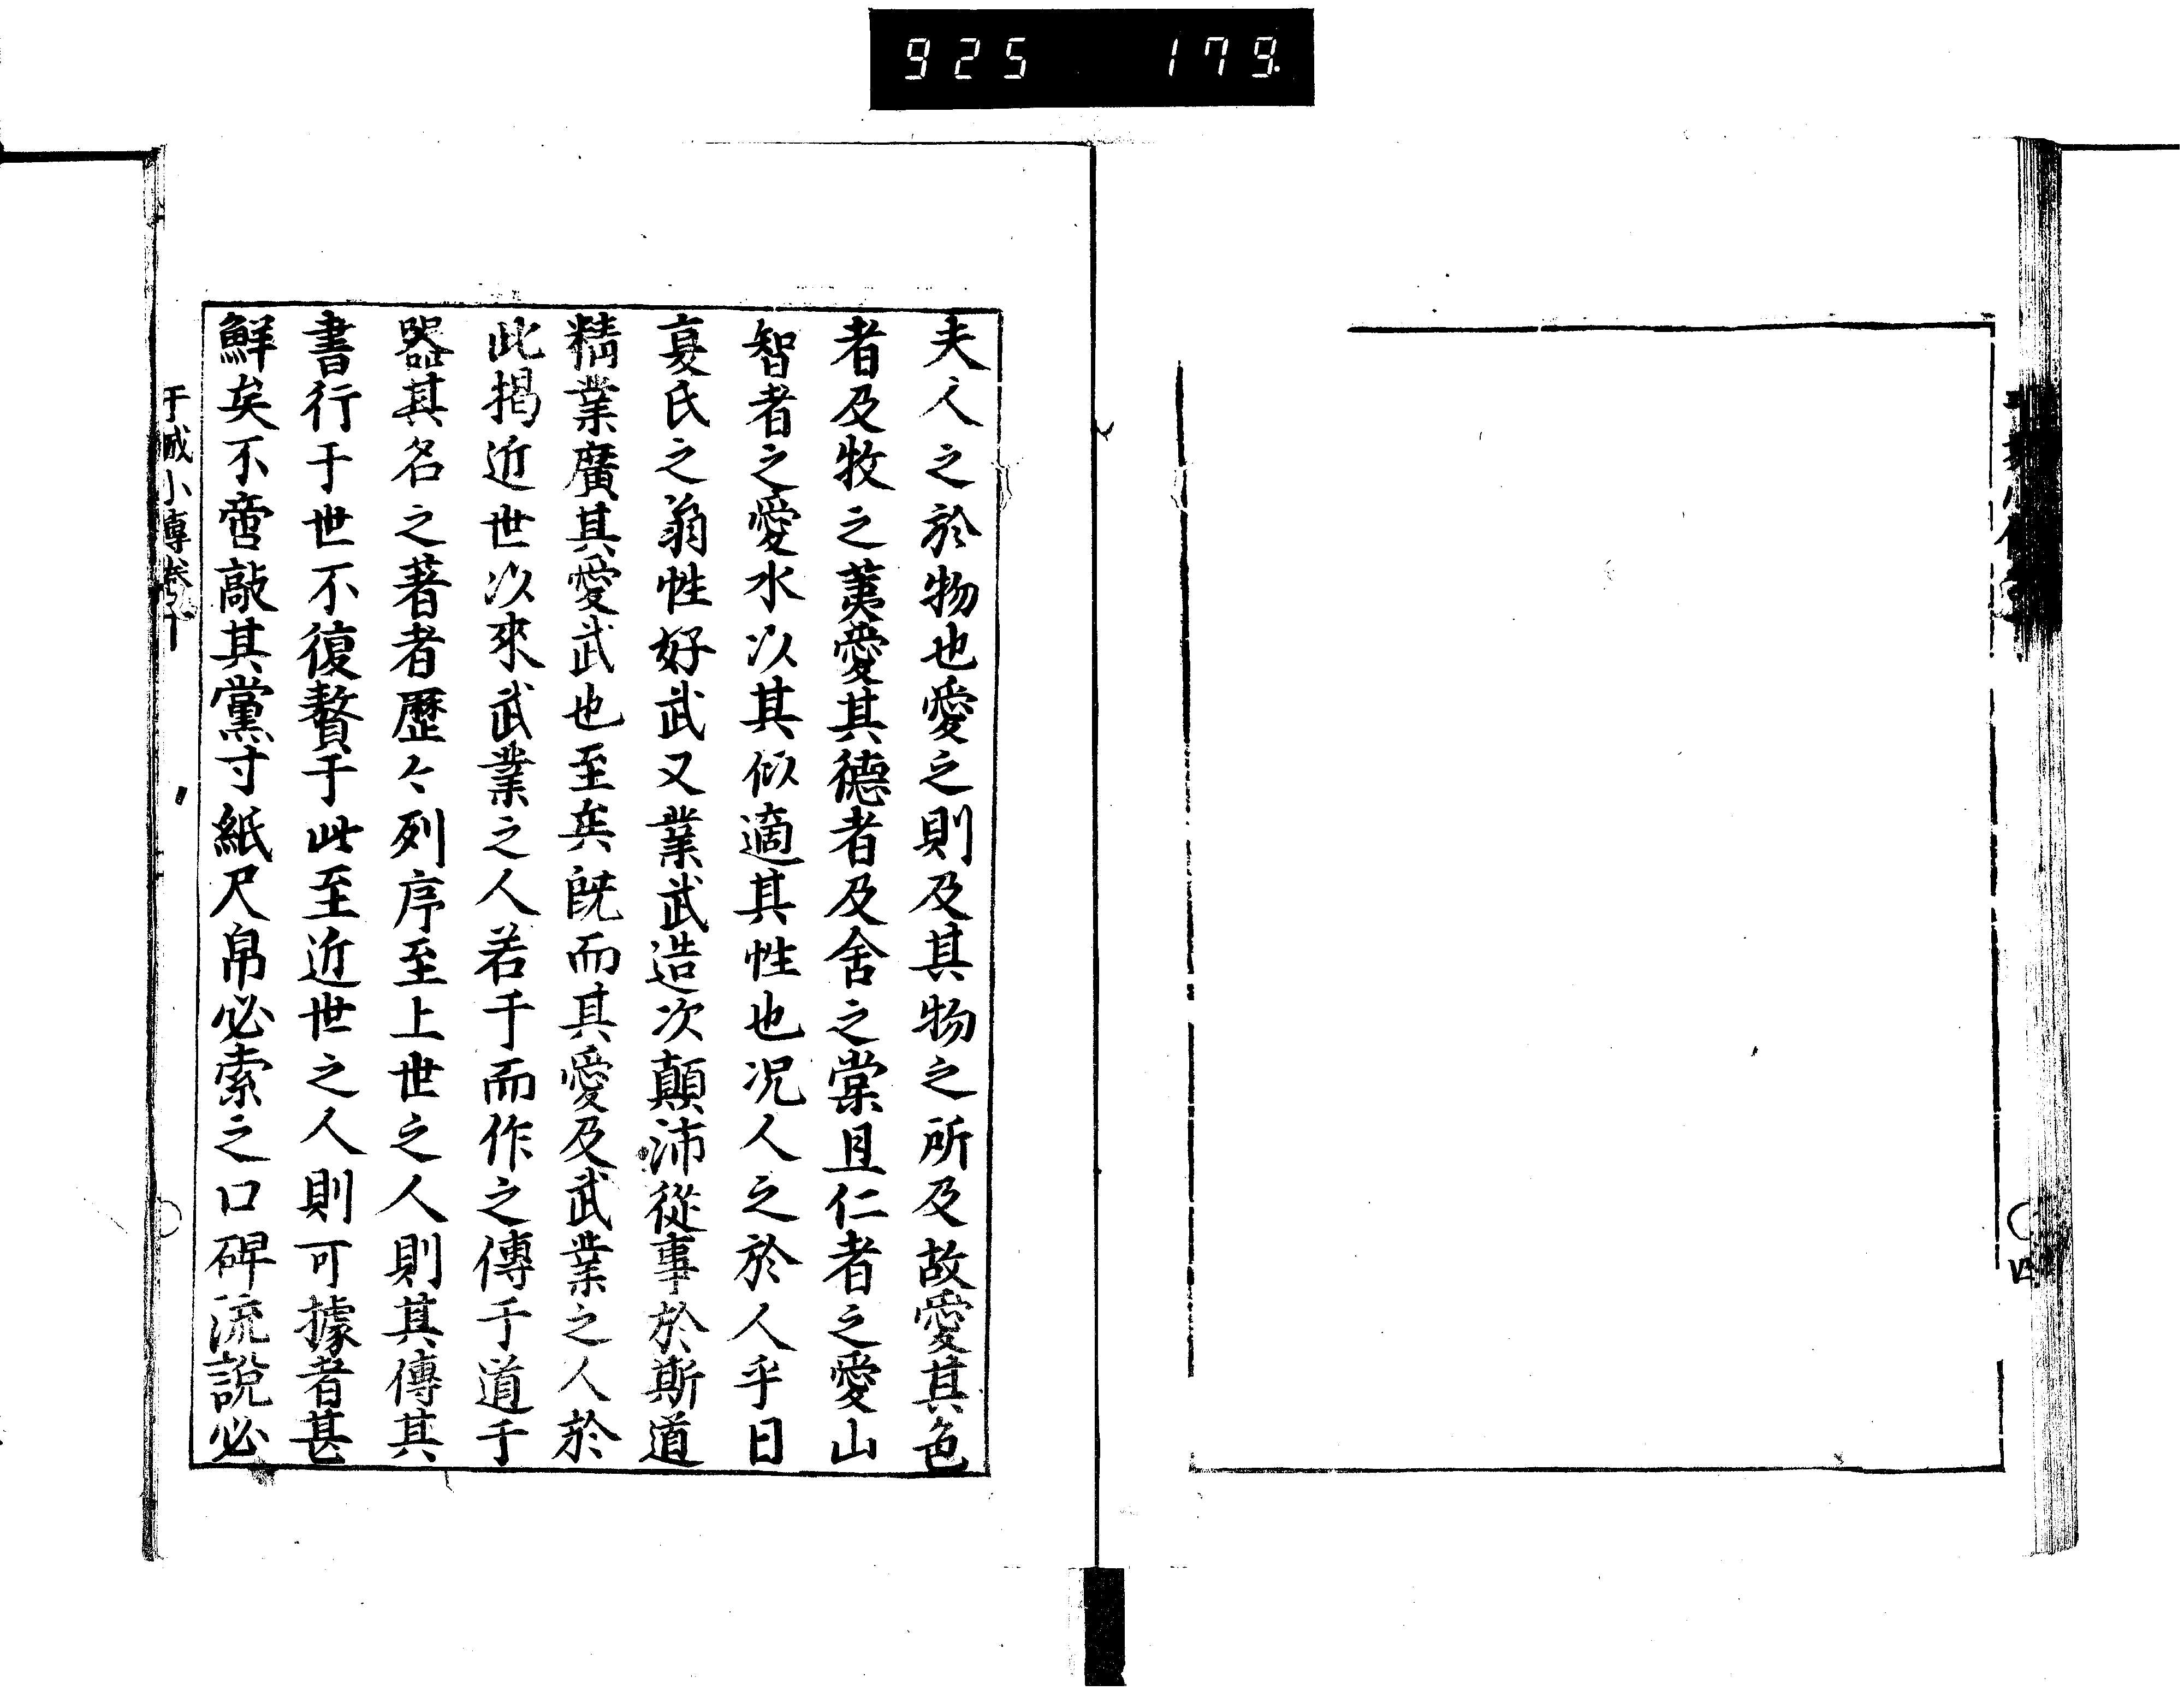 925 179.
夫人之於物也愛之則及其物之所及故愛其色
者及牧之荑愛其德者及舍之棠且仁者之愛山
智者之愛水以其似適其性也况人之於人乎日
夏氏之翁性好武又業武造次顛沛從事於斯道
精業廣其愛武也至矣既而其愛及武業之人於
此揭近世以來武業之人若干而作之傳于道于
器其名之著者歷々列序至上世之人則其傳其
書行于世不復贅于此至近世之人則可據者甚
鮮矣不啻敲其黨寸紙尺帛必索之口碑流說必
干城小傳卷下